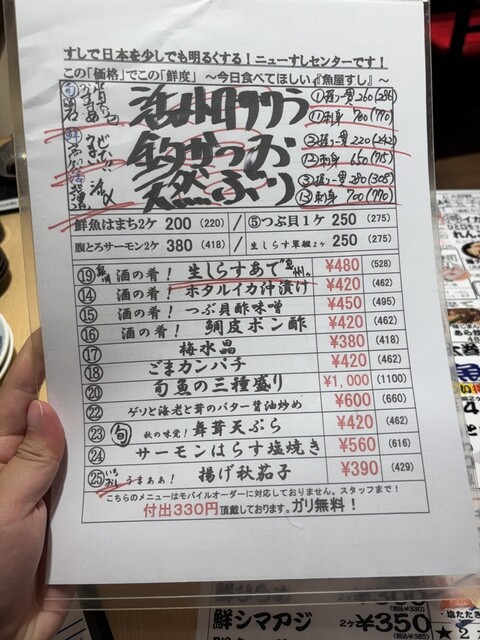 すしで日本を少しでも明るくする！ニューすしセンターです！
この「価格」でこの「鮮度」 ～今日食べてほしい『魚屋すし』～
①握り一貫 260(286)
⑪刺身 700(770)
釣かつお
②握り一貫 220(242)
⑫刺身 650(715)
天然ぶり
③握り一貫 280(308)
⑬刺身 700(770)
鮮魚はまち2ケ 200 (220) / ⑤つぶ貝1ケ 250 (275)
腹とろサーモン2ケ 380 (418) / 生しらす軍艦2ケ 250 (275)
⑲ 酒の肴！ 生しらすあて ¥480 (528)
⑭ 酒の肴！ ホタルイカ沖漬け ¥420 (462)
⑮ 酒の肴！ つぶ貝酢味噌 ¥450 (495)
⑯ 酒の肴！ 鯛皮ポン酢 ¥420 (462)
⑰ 梅水晶 ¥380 (418)
⑱ ごまカンパチ ¥420 (462)
⑳ 旬魚の三種盛り ¥1,000 (1100)
㉒ ゲソと海老と茸のバター醤油炒め ¥600 (660)
㉓ 旬 秋の味覚！ 舞茸天ぷら ¥420 (462)
㉔ サーモンはらす塩焼き ¥560 (616)
㉕ いちおし うまぁぁ！ 揚げ秋茄子 ¥390 (429)
こちらのメニューはモバイルオーダーに対応しておりません。スタッフまで！
付出330円頂戴しております。ガリ無料！
鮮シマアジ 2ケ ¥350 (税込¥385)